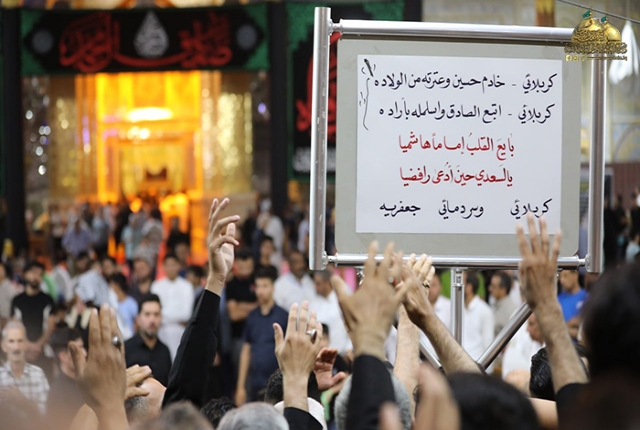 كربلائي - خادم حسين وعترته من الولاده
كربلائي - اتبع الصادق واسلمله بأراده
بايع القلبُ إماماً هاشميا
يالسعدي حين أُدعى رافضيا
كربلائي وسردماتي جعفريه